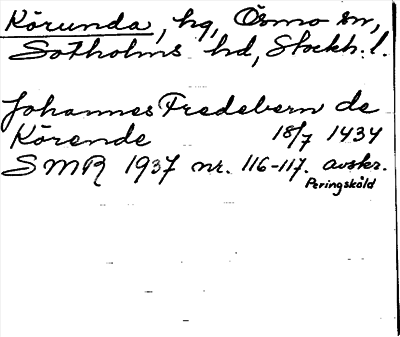 Körunda, hg, Ösmo sn,
Sotholms hd, Stockh. l.
Johannes Fredebern de
Körende 18/7 1434
SMR 1937 nr. 116-117. avskr.
Peringsköld